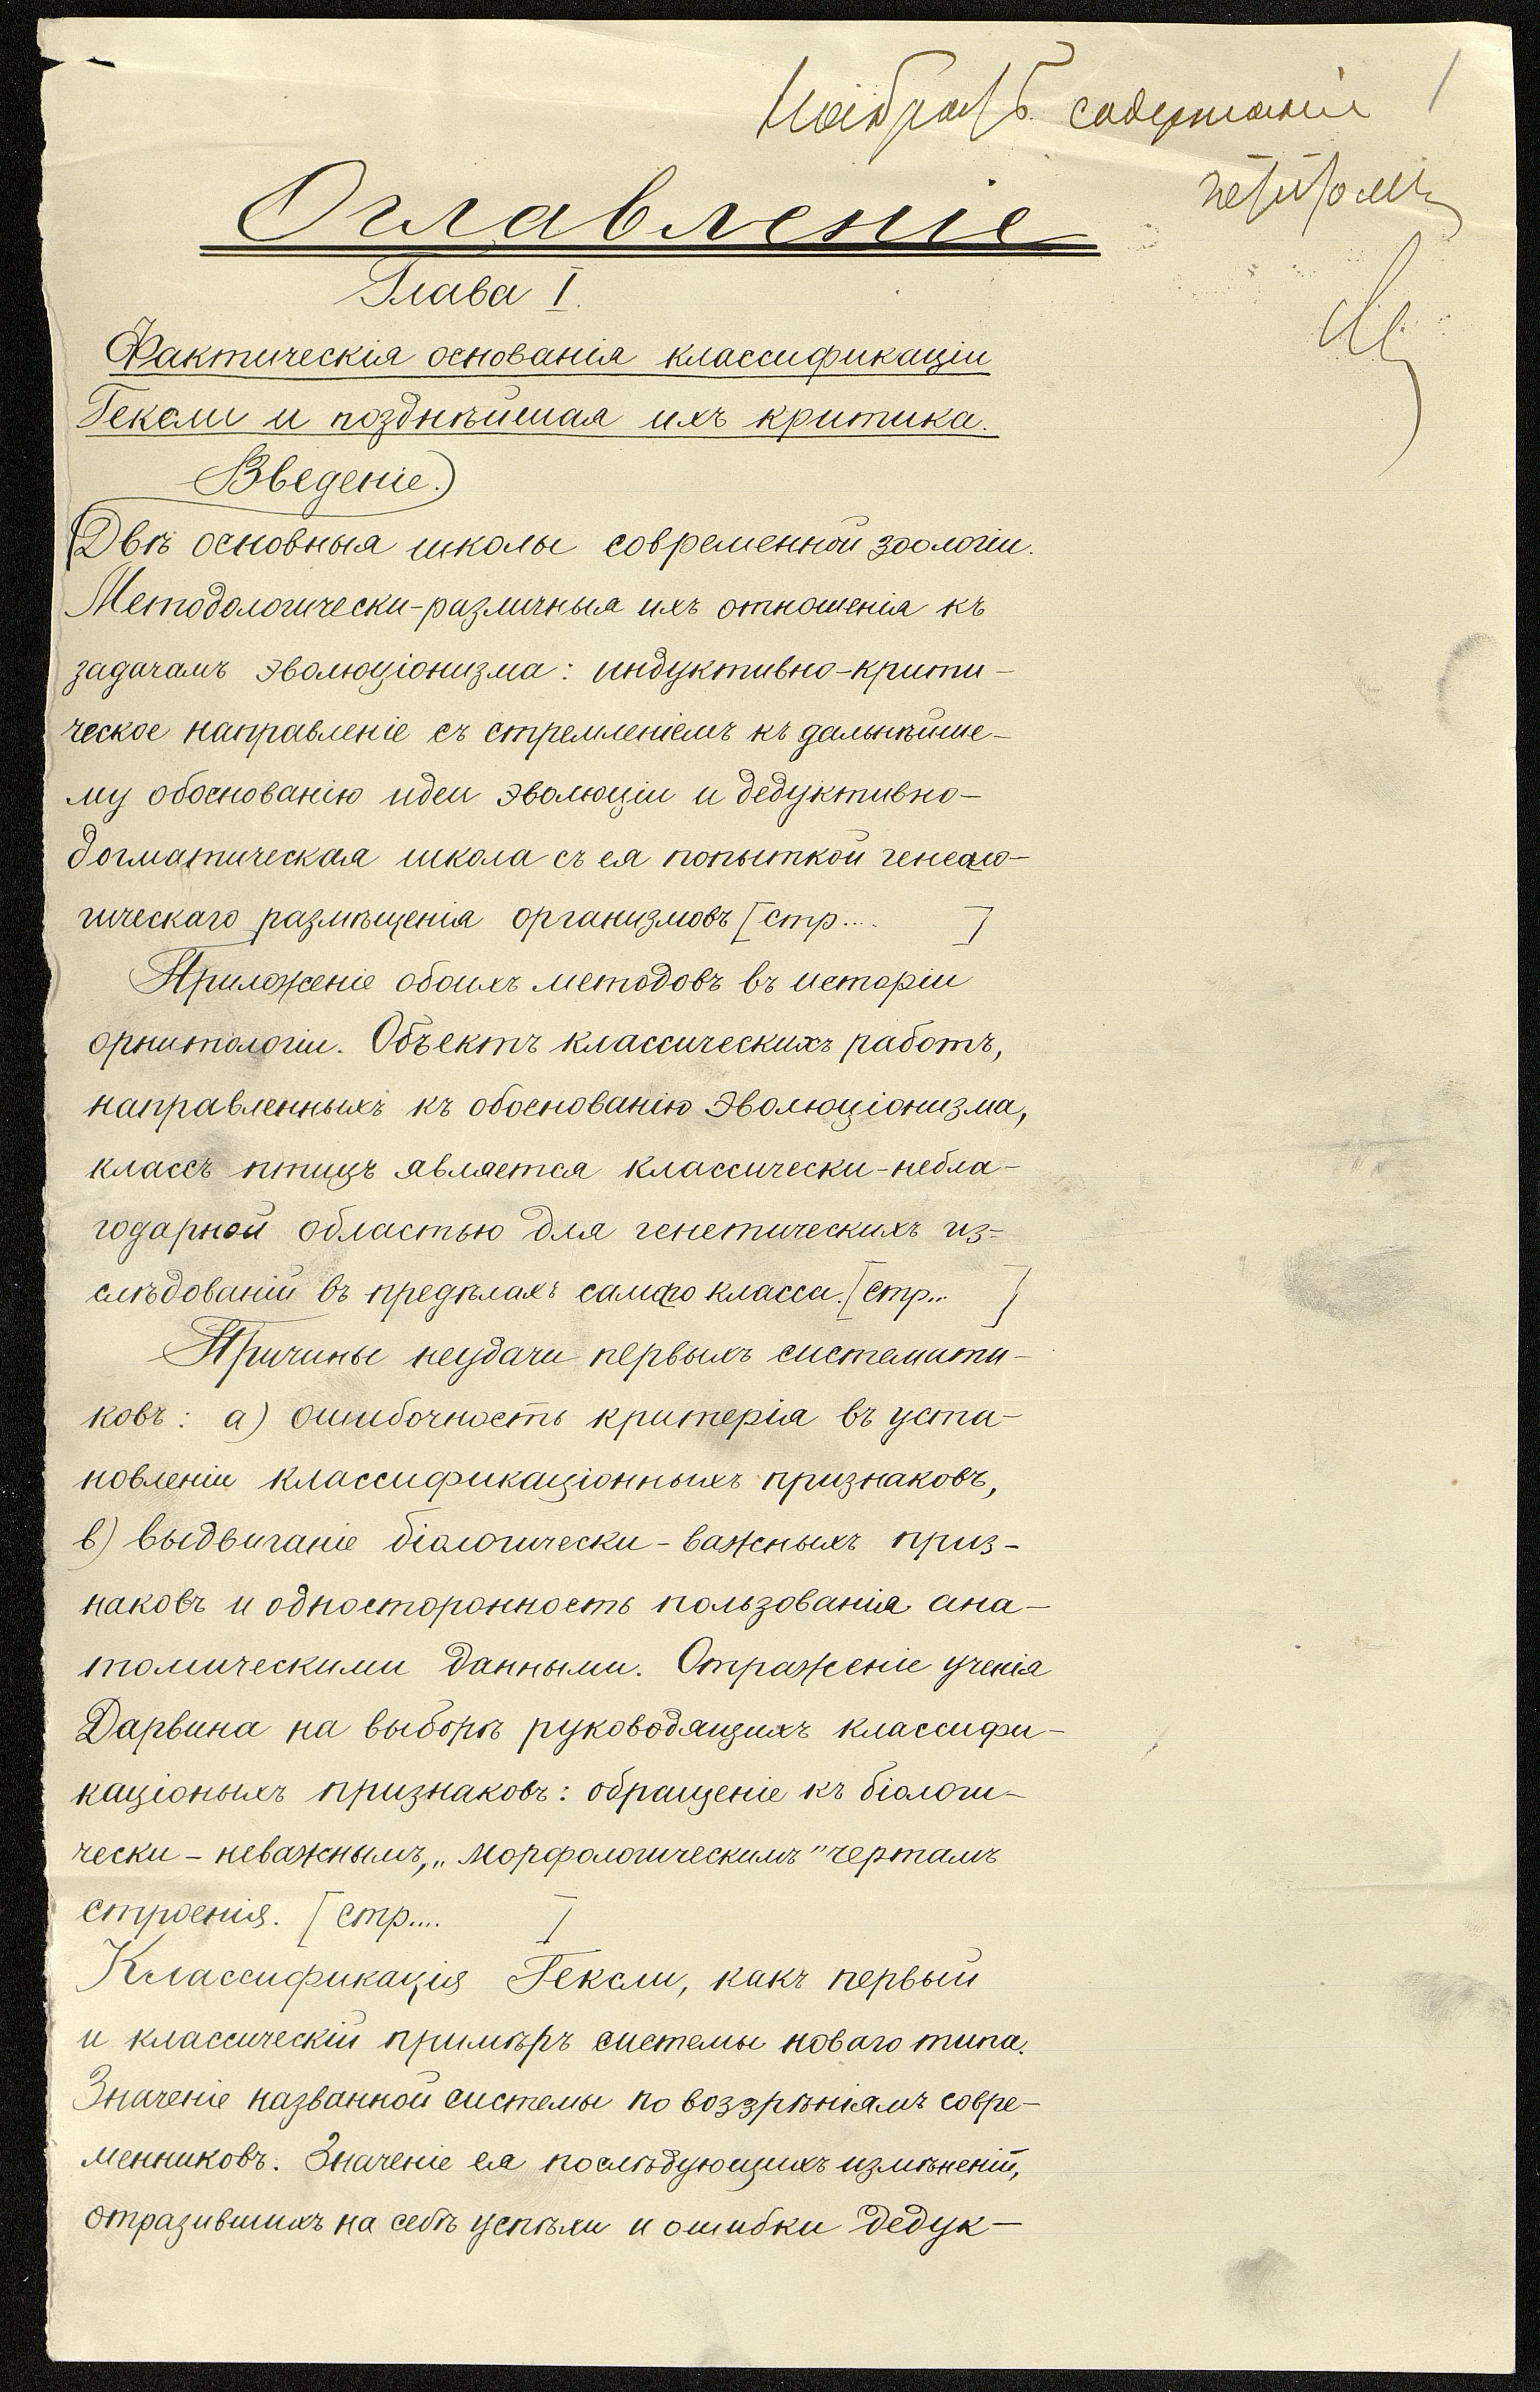 Набрать содержанія 1
петитомъ
Оглавленіе
Глава I.
Фактическія основанія классификаціи
Гексли и позднѣйшая ихъ критика.
Введеніе.)
(Двѣ основныя школы современной зоологіи.
Методологически-различныя ихъ отношенія къ
задачамъ эволюціонизма: индуктивно-крити-
ческое направленіе съ стремленіемъ къ дальнѣйше-
му обоснованію идеи эволюціи и дедуктивно-
догматическая школа съ ея попыткой генеало-
гическаго размѣщенія организмовъ [стр... ]
Приложеніе обоихъ методовъ въ исторіи
орнитологіи. Объектъ классическихъ работъ,
направленныхъ къ обоснованію эволюціонизма,
классъ птицъ является классически-небла-
годарной областью для генетическихъ из-
слѣдованій въ предѣлахъ самаго класса. [стр... ]
Причины неудачи первыхъ система­ти-
ковъ: а) ошибочность критерія въ уста-
новленіи классификаціонныхъ признаковъ,
в) выдвиганіе біологически-важныхъ приз-
наковъ и односторонность пользованія ана-
томическими данными. Отраженіе ученія
Дарвина на выборѣ руководящихъ классифи-
каціоныхъ признаковъ: обращеніе къ біологи-
чески-неважнымъ, „морфологическимъ" чертамъ
строенія. [стр.... ]
Классификація Гексли, какъ первый
и классическій примѣръ системы новаго типа.
Значеніе названной системы по воззрѣніямъ совре-
менниковъ. Значеніе ея послѣдующихъ измѣненій,
отразившихъ на себѣ успѣхи и ошибки дедук-